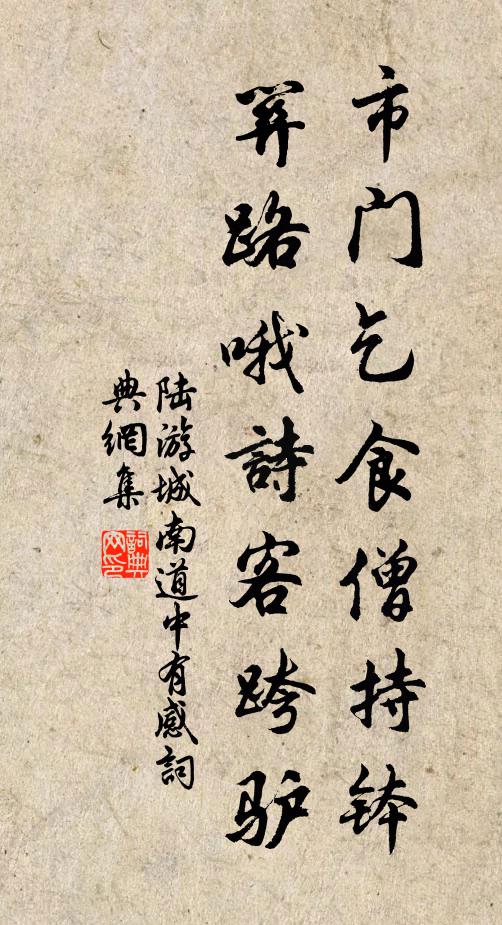 市门乞食僧持钵
路哦詩客跨驴
陆游城南道中有感詞
典網集
詞典
网印